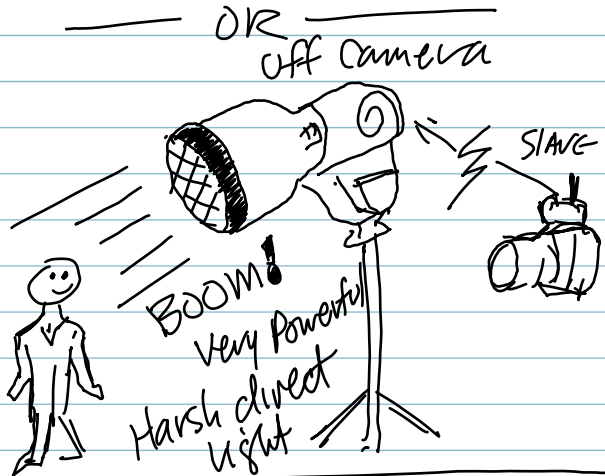 OR
Off Camera
SLAVE
BOOM!
Very Powerful
Harsh direct
light